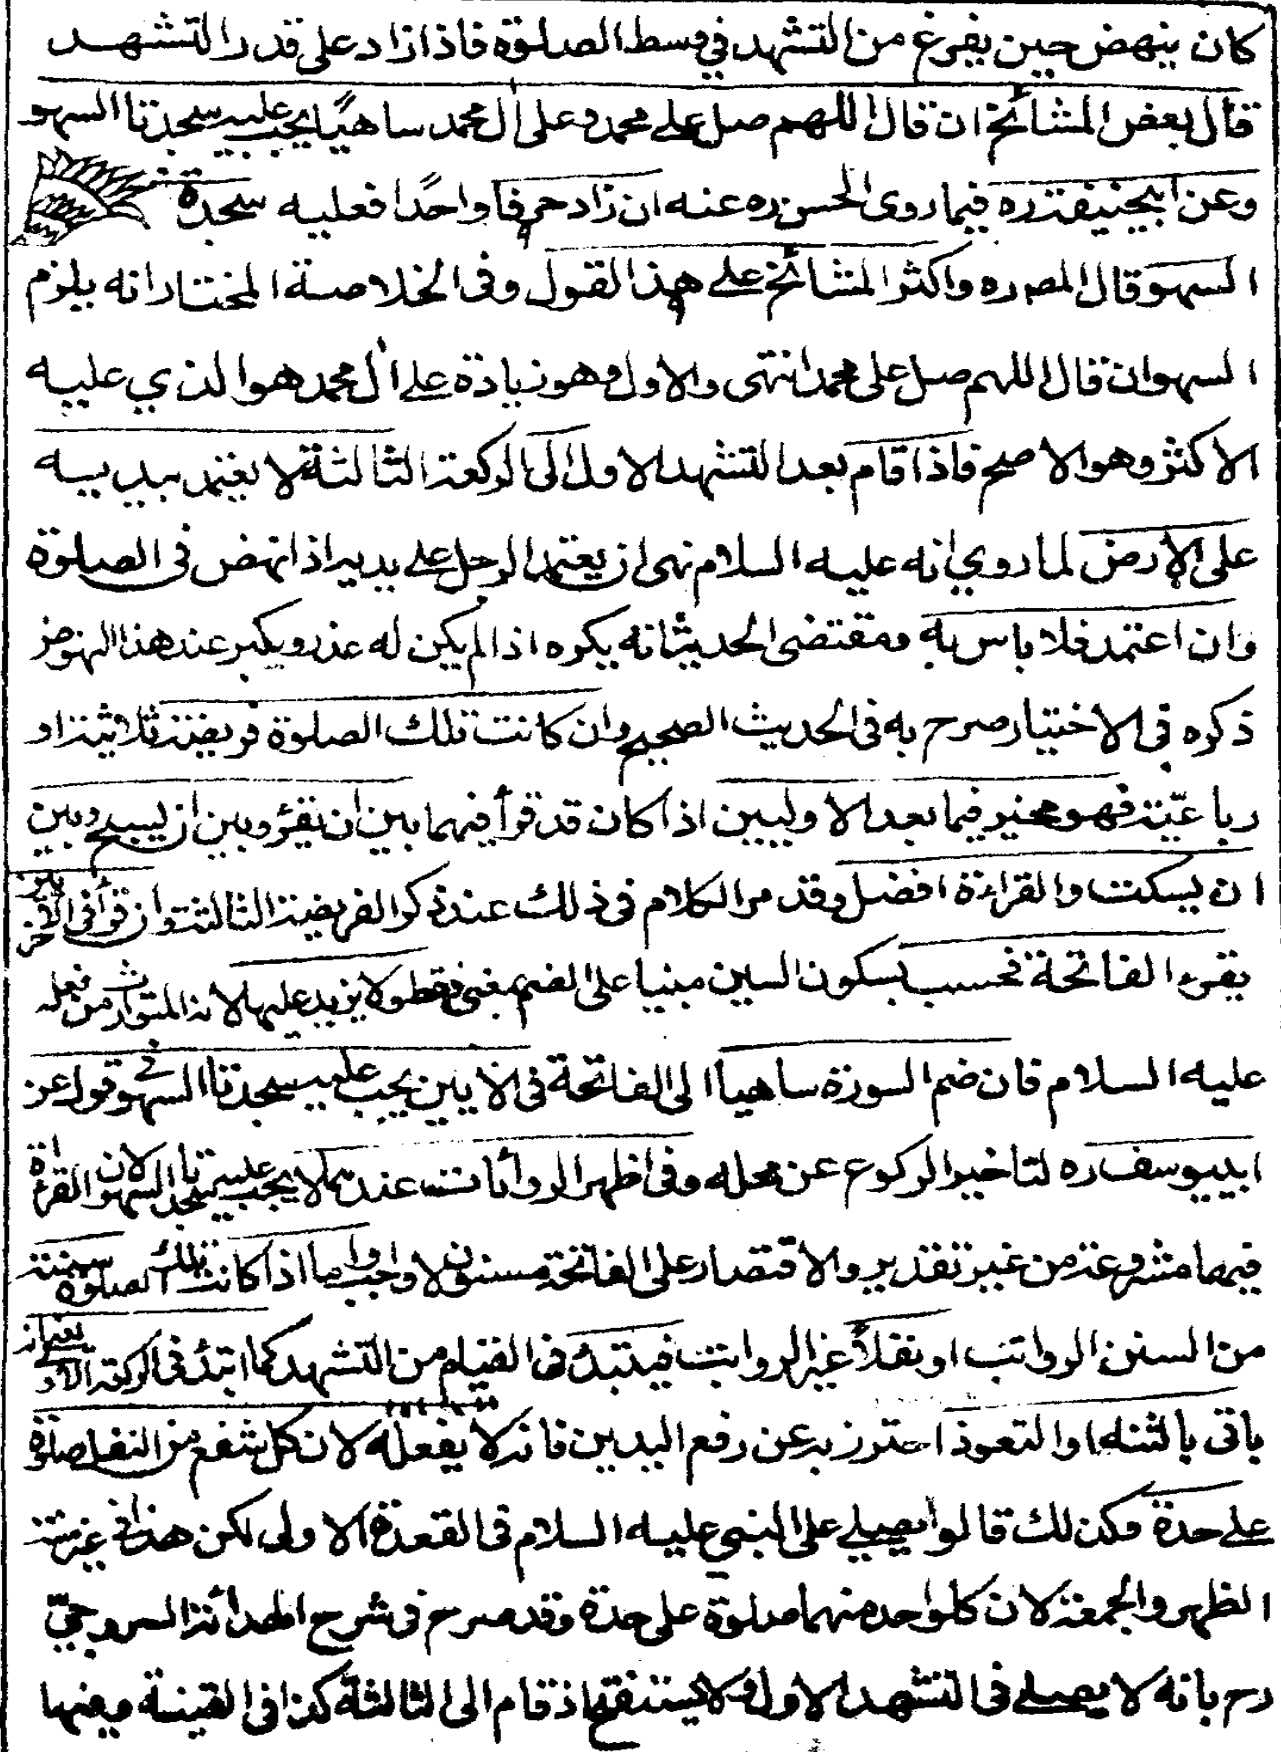 كان ينهض حين يفرغ من التشهد في وسط الصلوة فاذا زاد على قدر التشهد
قال بعض المشائخ ان قال اللهم صل على محمد وعلى آل محمد ساهيًا يجب عليه سجدتا السهو
وعن ابيحنيفة ره فيما روى الحسن ره عنه ان زاد حرفا واحدًا فعليه سجدة
السهو قال المصره واكثر المشائخ على هذا القول وفى الخلاصة المختار انه يلزم
السهو ان قال اللهم صل على محمد انتهى والاول وهو زيادة على آل محمد هو الذي عليه
الاكثر وهو الاصح فاذا قام بعد التشهد الاول الى الركعة الثالثة لا يعتمد بيديه
على الارض لما روي انه عليه السلام نهى ان يعتمد الرجل على يديه اذا نهض فى الصلوة
وان اعتمد فلا باس به ومقتضى الحديث انه يكره اذا لم يكن له عذر ويكبر عند هذا النهوض
ذكره فى الاختيار صرح به فى الحديث الصحيح وان كانت تلك الصلوة فريضة ثلاثية او
رباعيّة فهو مخير فيما بعد الاوليين اذا كان قد قرأ فيهما بين ان يقرؤ وبين ان يسبح وبين
ان يسكت والقراءة افضل وقد مر الكلام فى ذلك عند ذكر الفريضة الثالثة وان قرأ فى الاخريين
يقرء الفاتحة فحسب بسكون السين مبنيا على الضم بمعنى فقط ولا يزيد عليها لانه المتوارث من فعله
عليه السلام فان ضم السورة ساهيا الى الفاتحة فى الاخريين يجب عليه سجدتا السهو فى قول عن
ابييوسف ره لتاخير الركوع عن محله وفى اظهر الروايات عندهما لا يجب عليه سجدتا السهو لان القراءة
فيهما مشروعة من غير تقدير والاقتصار على الفاتحة مسنون لا واجب واما اذا كانت تلك الصلوة سنة
من السنن الرواتب او نفلاً غير الرواتب فيبتدئ فى القيام من التشهد كما ابتدئ فى الركعة الاولى يعنى انه
ياتى بالثناء والتعوذ احترز به عن رفع اليدين فانه لا يفعله لان كل شفع من النفل صلوة
على حدة وكذلك قالوا يصلى على النبى عليه السلام فى القعدة الاولى لكن هذا فى غير سنة
الظهر والجمعة لان كلواحد منهما صلوة على حدة وقد صرح فى شرح الهداية السروجيّ
رح بانه لا يصلى فى التشهد الاول ولا يستفتح اذ قام الى الثالثة كذا فى القنية ومنها